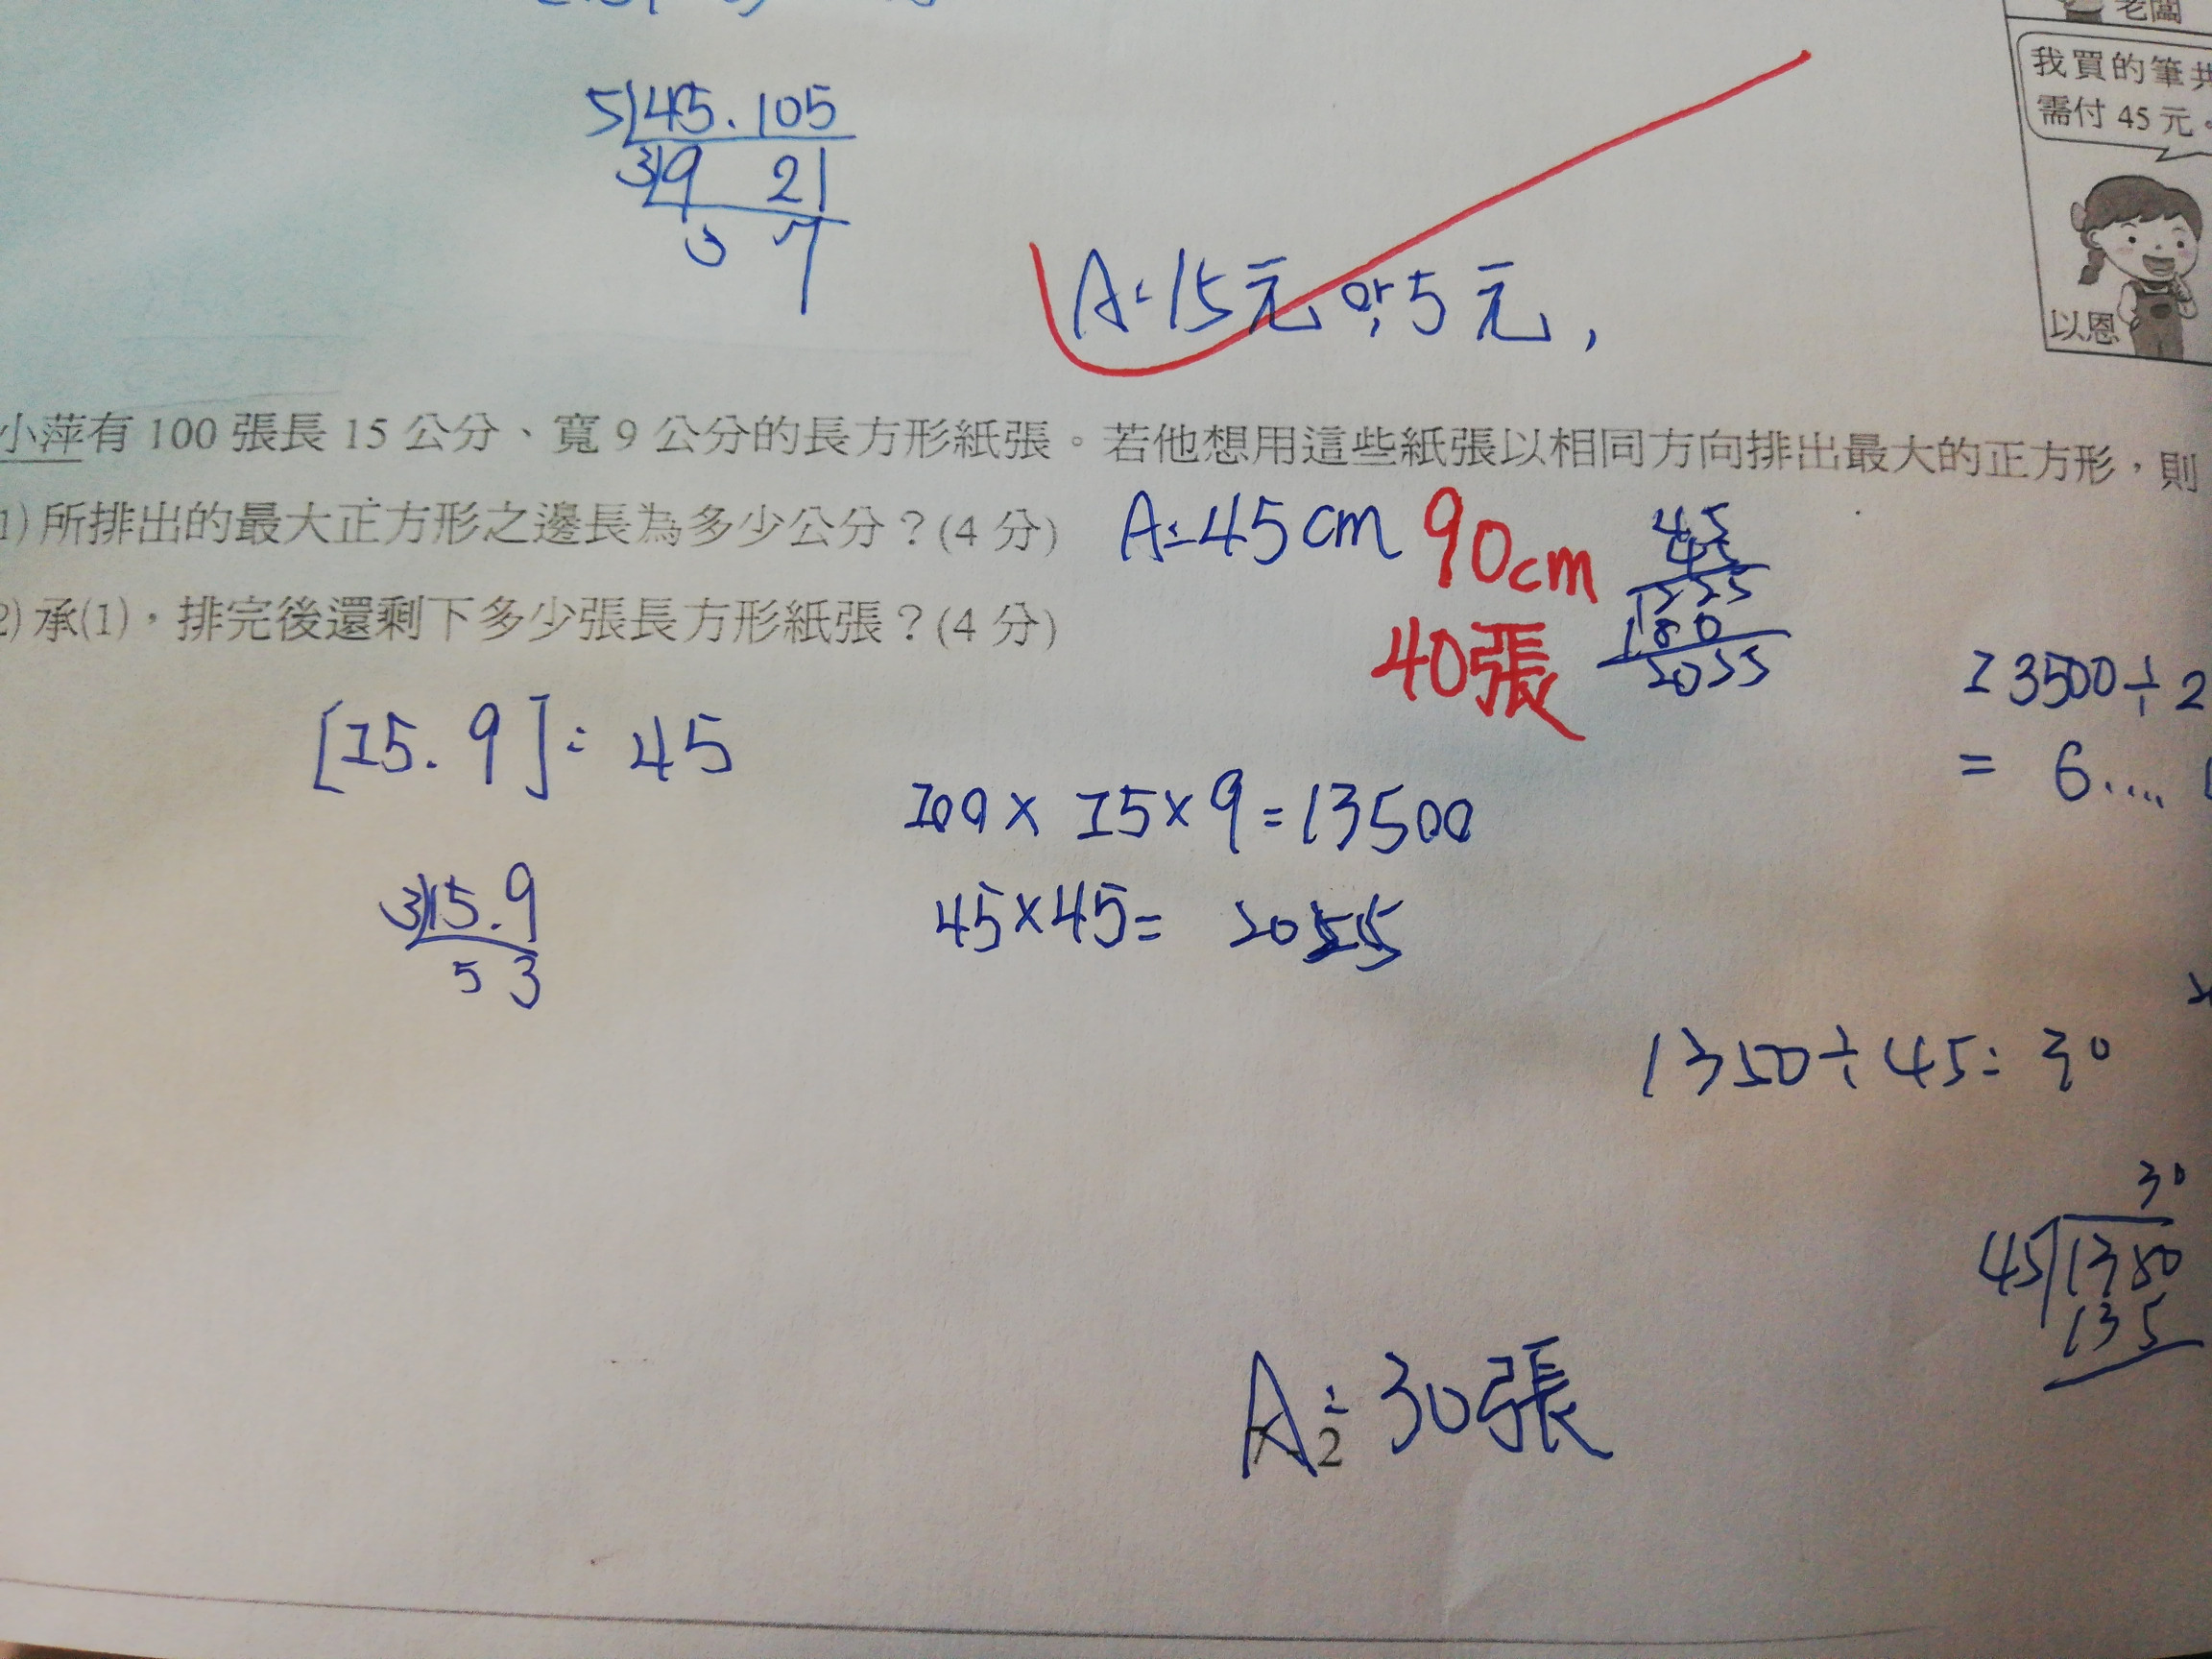 老闆
我買的筆共
需付 45 元。
以恩
5 45. 105
3 9 21
3 7
A:15元 or 5元,
小萍有 100 張長 15 公分、寬 9 公分的長方形紙張。若他想用這些紙張以相同方向排出最大的正方形,則
1) 所排出的最大正方形之邊長為多少公分?(4 分)
A:45cm 90cm
2) 承(1),排完後還剩下多少張長方形紙張?(4 分)
40張
45
45
225
180
2055
[15. 9]= 45
3 15. 9
5 3
100 × 15 × 9 = 13500
45×45= 2055
13500÷2
= 6....
1350÷45= 30
30
45 1350
135
A: 30張
2